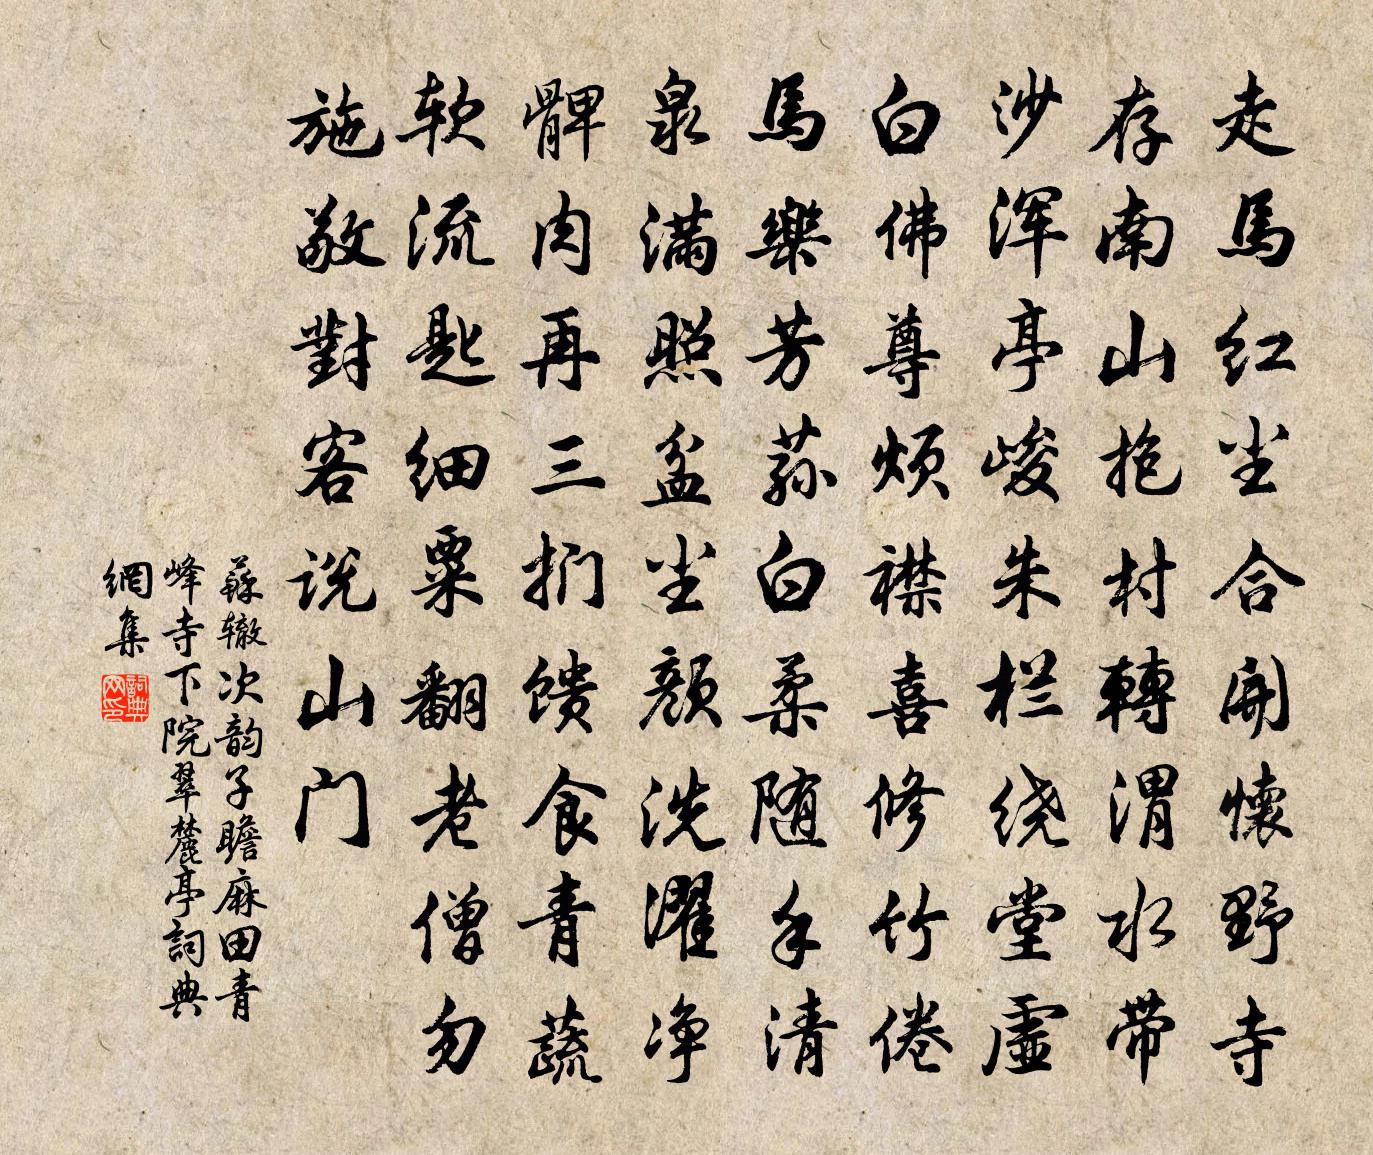 走馬红尘合開懷野寺
存南山抱村轉渭水带
沙浑亭峻朱栏绕堂虚
白佛尊烦襟喜修竹倦
馬樂芳荪白柔随手清
泉满照盆尘颜洗濯净
髀肉再三扪馈食青蔬
软流匙细粟翻老僧勿
施敬對客说山门
蘇辙次韵子瞻麻田青
峰寺下院翠麓亭詞典
網集
詞典
网印